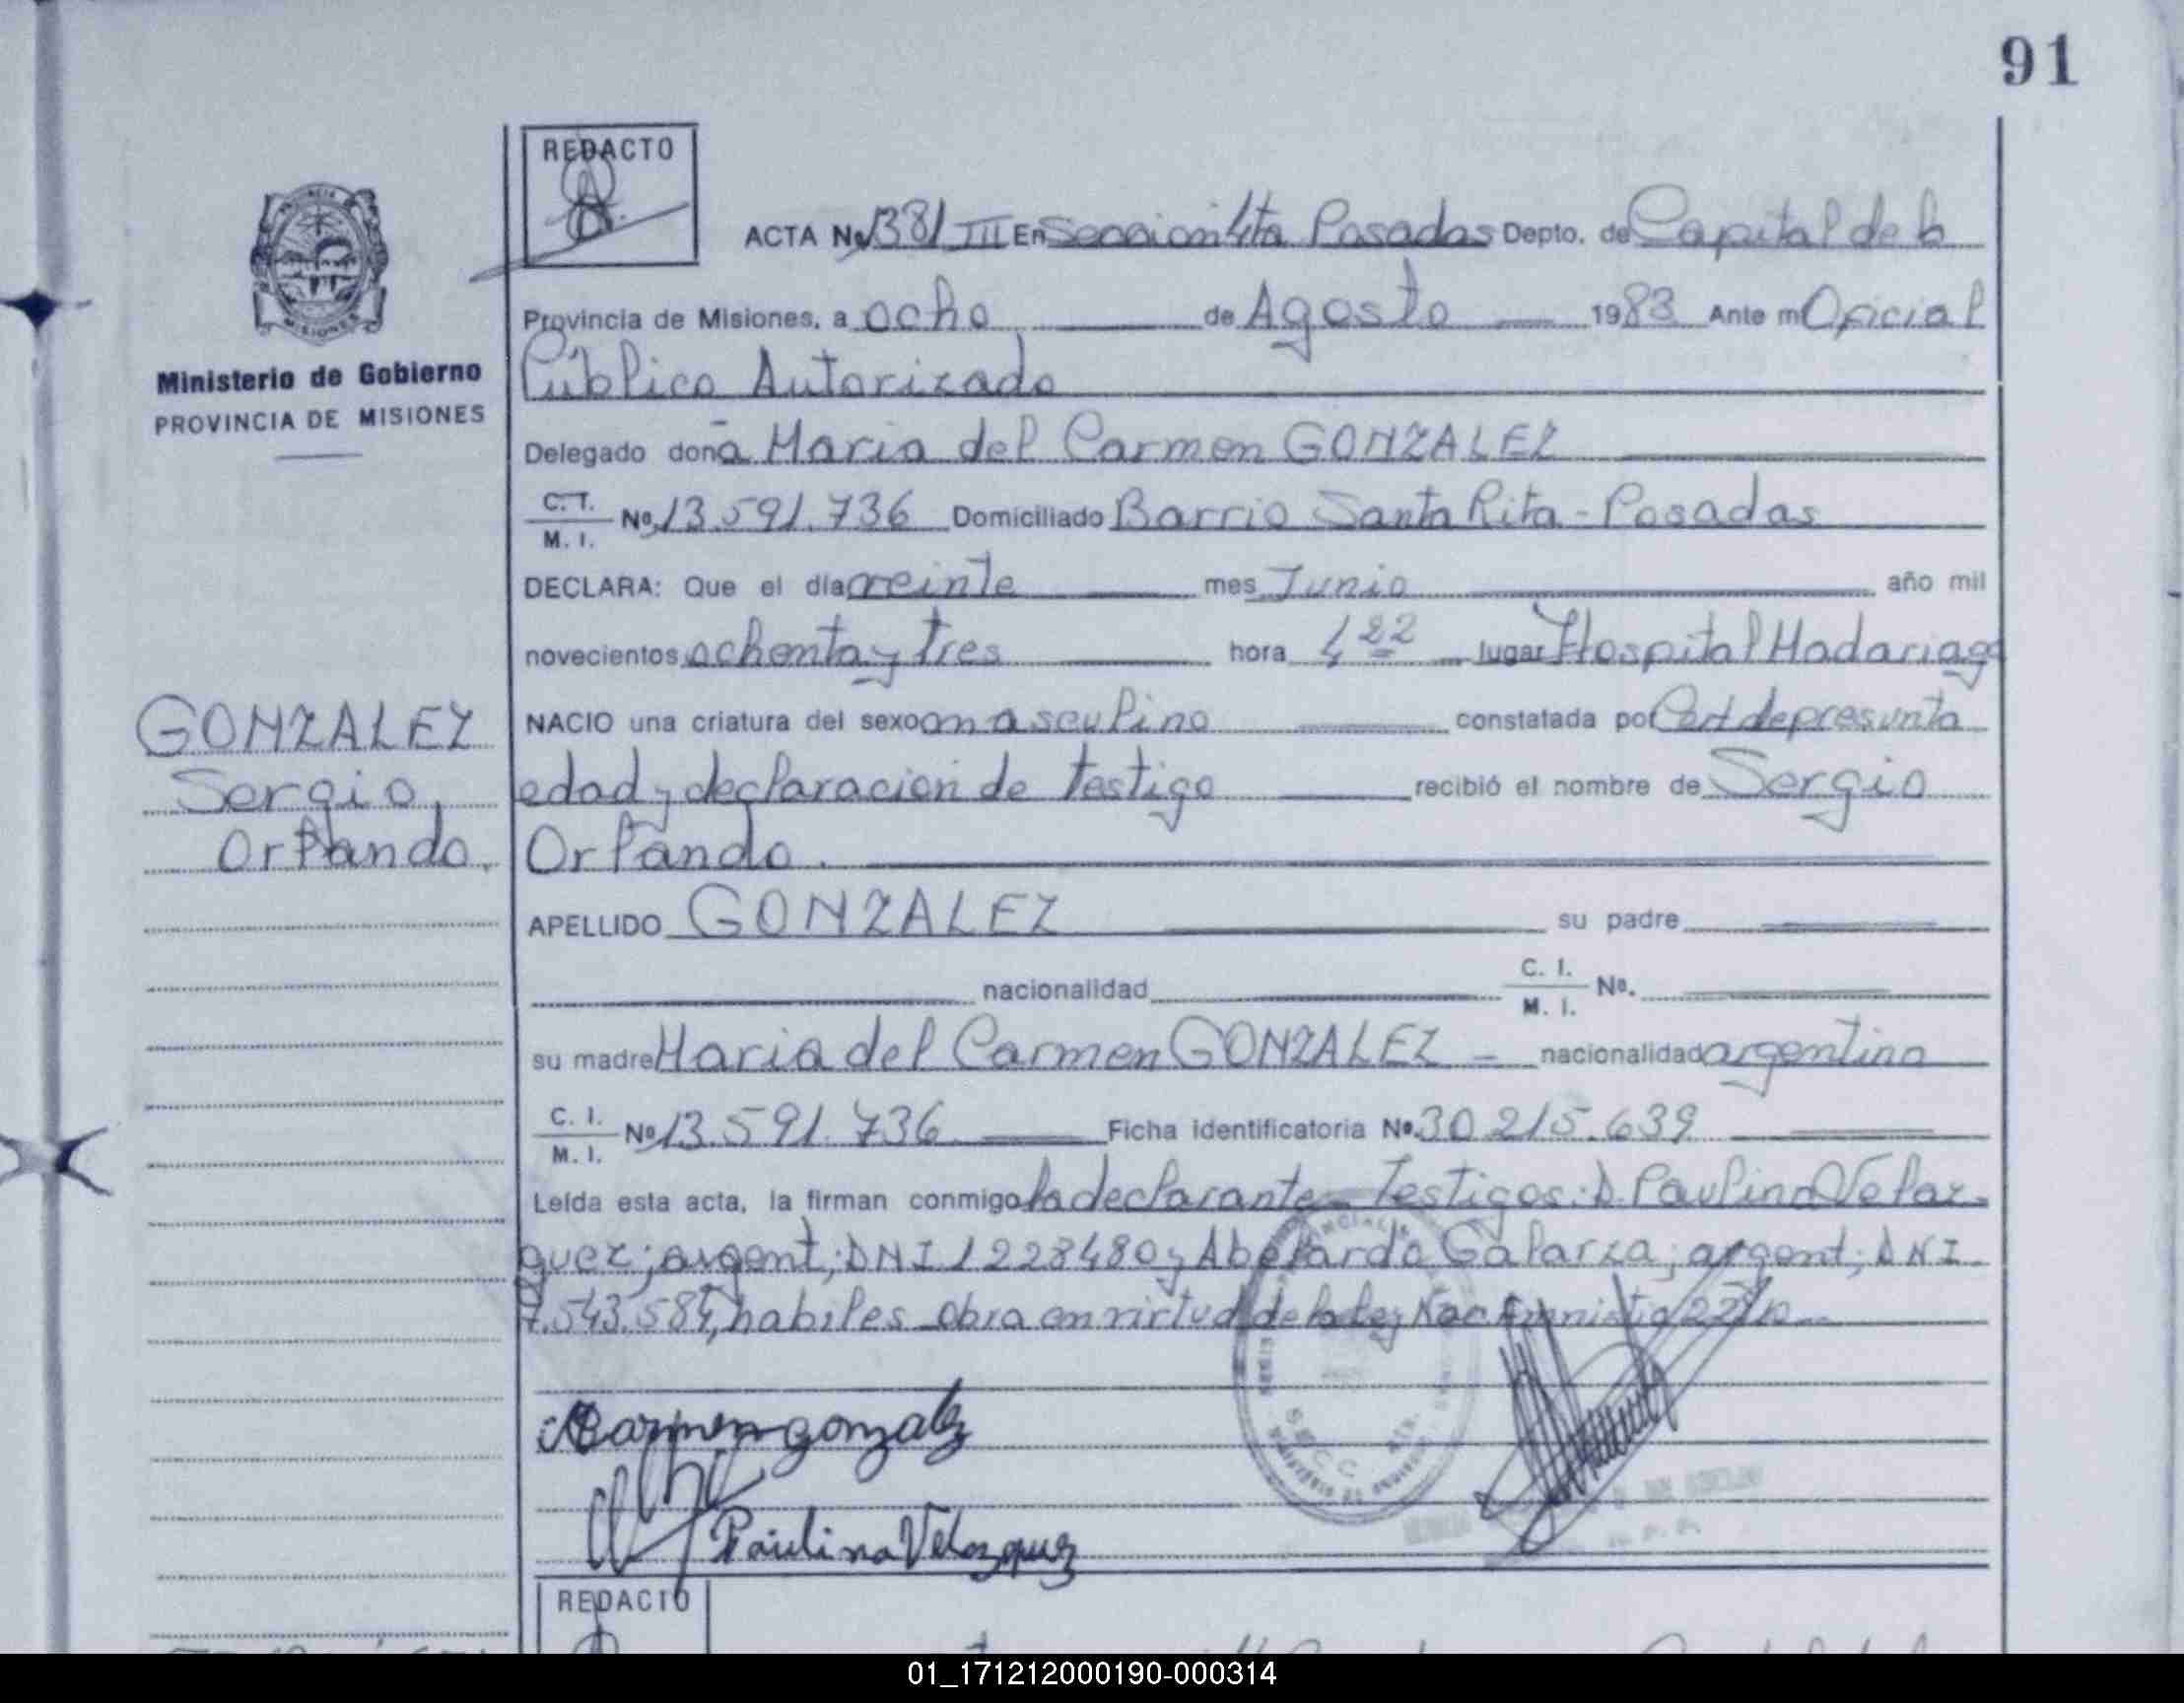 91
REDACTO
ACTA No 1381 III En Seccion 4ta Posadas Depto. de Capital de la
Provincia de Misiones, a ocho de Agosto 1983 Ante mi Oficial
Público Autorizado
Ministerio de Gobierno
PROVINCIA DE MISIONES
Delegado doña Maria del Carmen GONZALEZ
C.I. M. I. Nº 13.591.736 Domiciliado Barrio Santa Rita - Posadas
DECLARA: Que el día veinte mes Junio año mil
novecientos ochenta y tres hora 4 lugar Hospital Madariaga
NACIO una criatura del sexo masculino constatada por Cert de presunta
edad y declaración de testigo recibió el nombre de Sergio
Orlando.
GONZALEZ
Sergio
Orlando.
APELLIDO GONZALEZ su padre
nacionalidad C. I. M. I. Nº.
su madre Maria del Carmen GONZALEZ - nacionalidad argentina
C. I. M. I. Nº 13.591.736 Ficha identificatoria Nº. 30.215.639
Leída esta acta, la firman conmigo la declarante - Testigos: D. Paulina Velaz
quez; argent; DNI 1228480 y Abelardo Galarza; argent; DNI
7.543.584, habiles - obra en virtud de la ley Nac Amnistia
MCarmen gonzalez
Paulina Velazquez
REDACTO
01_171212000190-000314